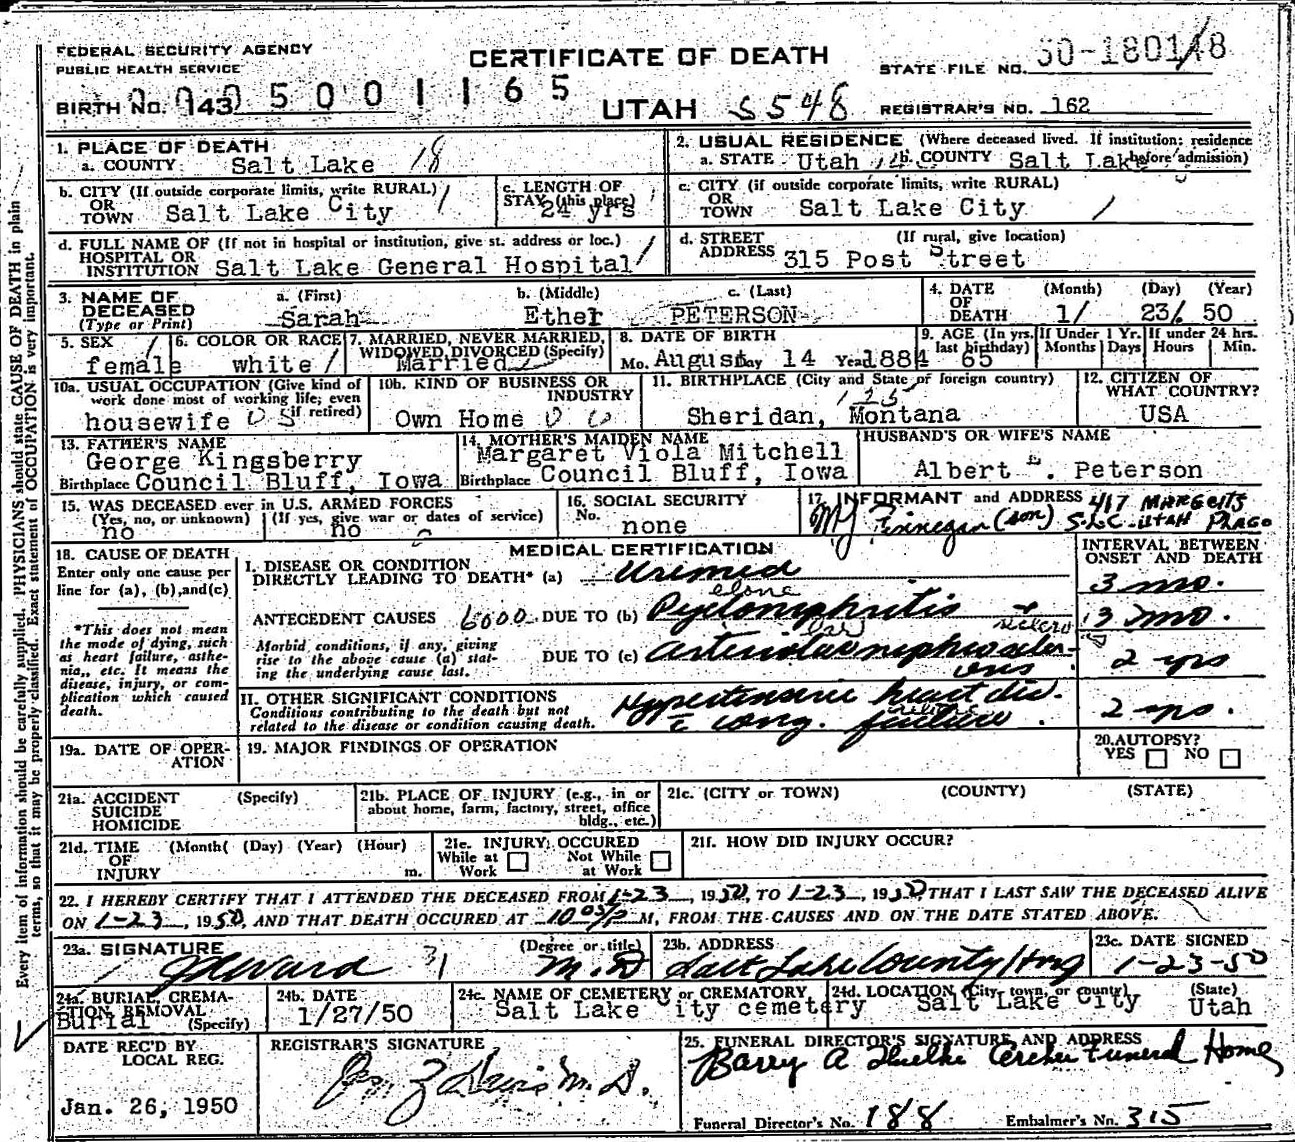 FEDERAL SECURITY AGENCY
PUBLIC HEALTH SERVICE
CERTIFICATE OF DEATH
STATE FILE NO. 50-1801
BIRTH NO. 143 5001165
UTAH S548
REGISTRAR'S NO. 162
1. PLACE OF DEATH
a. COUNTY Salt Lake 18
2. USUAL RESIDENCE (Where deceased lived. If institution: residence before admission)
a. STATE Utah b. COUNTY Salt Lake
b. CITY (If outside corporate limits, write RURAL)
OR
TOWN Salt Lake City
c. LENGTH OF
STAY (this place)
24 yrs
c. CITY (if outside corporate limits, write RURAL)
OR
TOWN Salt Lake City
d. FULL NAME OF (If not in hospital or institution, give st. address or loc.)
HOSPITAL OR
INSTITUTION Salt Lake General Hospital
d. STREET (If rural, give location)
ADDRESS 315 Post Street
3. NAME OF
DECEASED
(Type or Print)
a. (First) b. (Middle) c. (Last)
Sarah Ether PETERSON
4. DATE
OF
DEATH
(Month) (Day) (Year)
1/ 23/ 50
5. SEX
female
6. COLOR OR RACE
white
7. MARRIED, NEVER MARRIED,
WIDOWED DIVORCED (Specify)
Married
8. DATE OF BIRTH
Mo. August Day 14 Year 1884
9. AGE (In yrs.
last birthday)
65
If Under 1 Yr.
Months Days
If under 24 hrs.
Hours Min.
10a. USUAL OCCUPATION (Give kind of
work done most of working life; even
if retired)
housewife
10b. KIND OF BUSINESS OR
INDUSTRY
Own Home
11. BIRTHPLACE (City and State or foreign country)
Sheridan, Montana
12. CITIZEN OF
WHAT COUNTRY?
USA
13. FATHER'S NAME
George Kingsberry
Birthplace Council Bluff, Iowa
14. MOTHER'S MAIDEN NAME
Margaret Viola Mitchell
Birthplace Council Bluff, Iowa
HUSBAND'S OR WIFE'S NAME
Albert E. Peterson
15. WAS DECEASED ever in U.S. ARMED FORCES
(Yes, no, or unknown) (If yes, give war or dates of service)
no no
16. SOCIAL SECURITY
No. none
17. INFORMANT and ADDRESS 417 MARGETTS
Finnegan (son) S.L.C. UTAH
18. CAUSE OF DEATH
Enter only one cause per
line for (a), (b), and (c)
*This does not mean
the mode of dying, such
as heart failure, asthe-
nia,, etc. It means the
disease, injury, or com-
plication which caused
death.
MEDICAL CERTIFICATION
INTERVAL BETWEEN
ONSET AND DEATH
I. DISEASE OR CONDITION
DIRECTLY LEADING TO DEATH* (a) Uremia
3 mo.
ANTECEDENT CAUSES 6000 DUE TO (b) Pyelonephritis
3 mo.
Morbid conditions, if any, giving
rise to the above cause (a) stat-
ing the underlying cause last.
DUE TO (c) Arteriolar nephroscler-
osis
2 yrs
II. OTHER SIGNIFICANT CONDITIONS
Conditions contributing to the death but not
related to the disease or condition causing death.
Hypertensive heart dis.
c cong. failure.
2 yrs.
19a. DATE OF OPER-
ATION
19. MAJOR FINDINGS OF OPERATION
20. AUTOPSY?
YES NO
21a. ACCIDENT (Specify)
SUICIDE
HOMICIDE
21b. PLACE OF INJURY (e.g., in or
about home, farm, factory, street, office
bldg., etc.)
21c. (CITY or TOWN) (COUNTY) (STATE)
21d. TIME (Month( (Day) (Year) (Hour)
OF
INJURY m.
21e. INJURY OCCURED
While at Work Not While at Work
21f. HOW DID INJURY OCCUR?
22. I HEREBY CERTIFY THAT I ATTENDED THE DECEASED FROM 1-23, 1950, TO 1-23, 1950, THAT I LAST SAW THE DECEASED ALIVE
ON 1-23, 1950, AND THAT DEATH OCCURED AT 10 05 P M, FROM THE CAUSES AND ON THE DATE STATED ABOVE.
23a. SIGNATURE (Degree or title)
Ward M.D
23b. ADDRESS
Salt Lake County Hosp
23c. DATE SIGNED
1-23-50
24a. BURIAL, CREMA-
TION, REMOVAL
(Specify)
Burial
24b. DATE
1/27/50
24c. NAME OF CEMETERY or CREMATORY
Salt Lake City cemetery
24d. LOCATION (City, town, or county) (State)
Salt Lake City Utah
DATE REC'D BY
LOCAL REG.
Jan. 26, 1950
REGISTRAR'S SIGNATURE
M.D.
25. FUNERAL DIRECTOR'S SIGNATURE AND ADDRESS
Barry A Funeral Home
Funeral Director's No. 188 Embalmer's No. 315
Every item of information should be carefully supplied. PHYSICIANS should state CAUSE OF DEATH in plain
terms, so that it may be properly classified. Exact statement of OCCUPATION is very important.